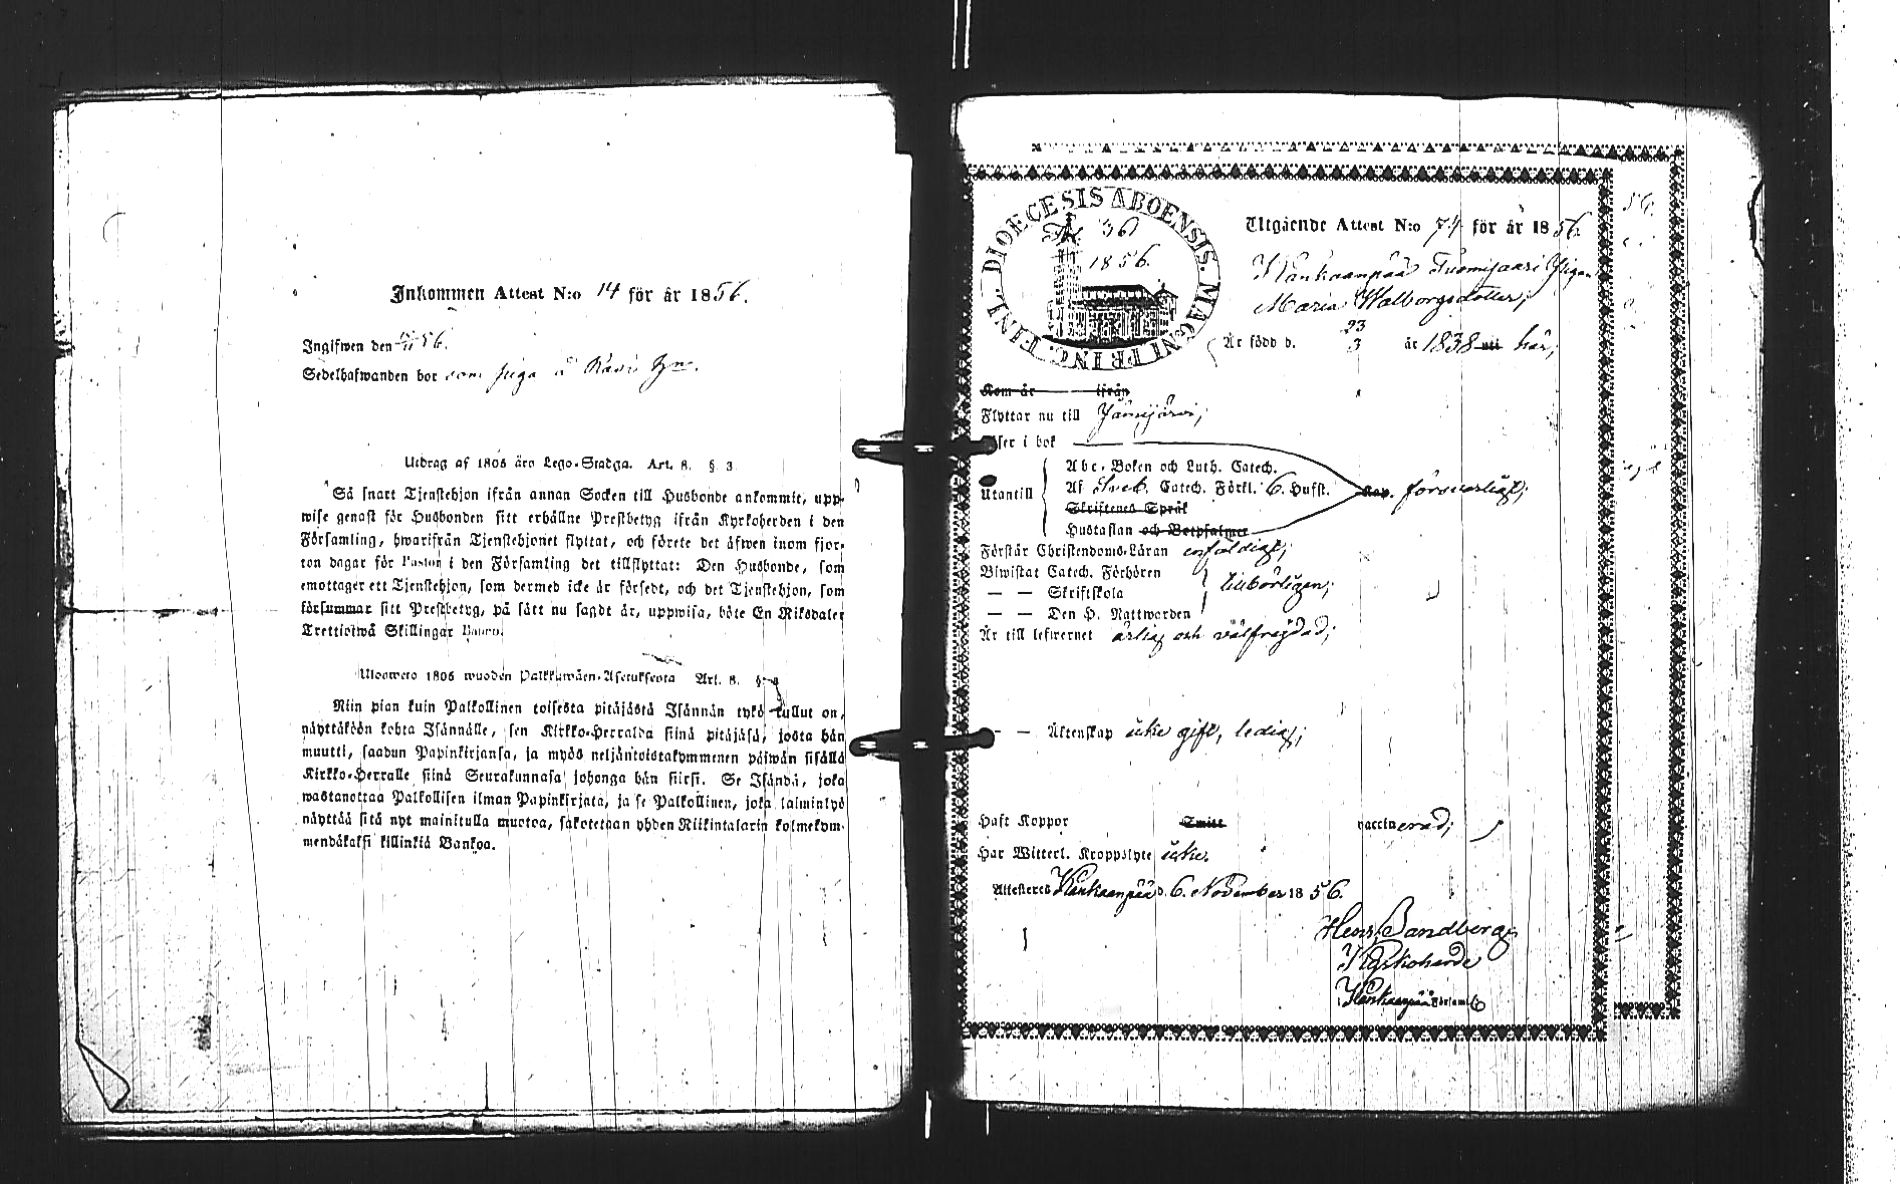 Inkommen Attest N:o 14 för år 1856.
Ingifwen den 56.
Sedelhafwanden bor som piga å
Utdrag af 1805 års Lego-Stadga. Art. 8. § 3
Så snart Tjenstehjon ifrån annan Socken till Husbonde ankommit, upp-
wise genast för Husbonden sitt erhållne Prestbetyg ifrån Kyrkoherden i den
Församling, hwarifrån Tjenstehjonet flyttat, och förete det äfwen inom fjor-
ton dagar för Pastor i den Församling det tillflyttat: Den Husbonde, som
emottager ett Tjenstehjon, som dermed icke är försedt, och det Tjenstehjon, som
försummar sitt Prestbetyg, på sätt nu sagdt är, uppwisa, böte En Riksdaler
Trettiotwå Skillingar Banco.
Ulosweto 1805 wuoden Palkkawäen-Asetuksesta Art. 8. §
Niin pian kuin Palkollinen toisesta pitäjästä Isännän tykö tullut on,
näyttäköön kohta Isännälle, sen Kirkko-Herralda siinä pitäjäsä, josta hän
muutti, saadun Papinkirjansa, ja myös neljäntoistakymmenen päiwän sisällä
Kirkko-Herralle siinä Seurakunnasa johonga hän siirsi. Se Isändä, joka
wastanottaa Palkollisen ilman Papinkirjata, ja se Palkollinen, joka laiminlyö
näyttää sitä nyt mainitulla muotoa, sakotetaan yhden Riikintalarin kolmekym-
mendäkaksi killinkiä Bankoa.
DIOECESIS ABOENSIS. MAGNI PRINC. FINL.
36
1856.
Utgående Attest N:o 74 för år 1856.
Kankaanpää Tuomijaari Pigan
Maria Walborgsdotter;
Är född d. 23/3 år 1838 uti här;
Kom år ifrån
Flyttar nu till Jämijärvi;
Läser i bok
Utantill
Abc-Boken och Luth. Catech.
Af Sveb. Catech. Förkl. 6. Hufst. Kap. försvarligt;
Skriftenes Språk
Hustaflan och Botpsalmer
Förstår Christendoms-Läran enfaldigt;
Biwistat Catech. Förhören
— — Skriftskola
tillbörligen;
— — Den H. Nattwarden
Är till lefwernet ärlig och välfrejdad;
— — Äktenskap icke gift, ledig;
Haft Koppor Smitt vaccinerad;
Har Witterl. Kroppslyte icke.
Attesteras Kankaanpää d. 6. November 1856.
Henr. Sandberg
Kyrkoherde
Kankaanpää Församl.